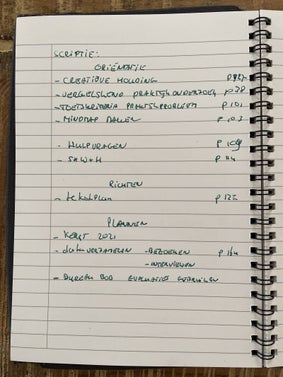 SCRIPTIE:
ORIËNTATIE
- CREATIEVE HOUDING
- VERGELIJKEND PRAKTIJKONDERZOEK p 78
- TOETSCRITERIA PRAKTIJKPROBLEEM p 101
- MINDMAP MAKEN p 103
- HULPVRAGEN p 109
- 5xW+H p 114
RICHTEN
- tekstplan p 122
PLANNEN
- KERST 2021
- data verzamelen - BEZOEKEN p 164
- INTERVIEWEN
- DUREN BOD